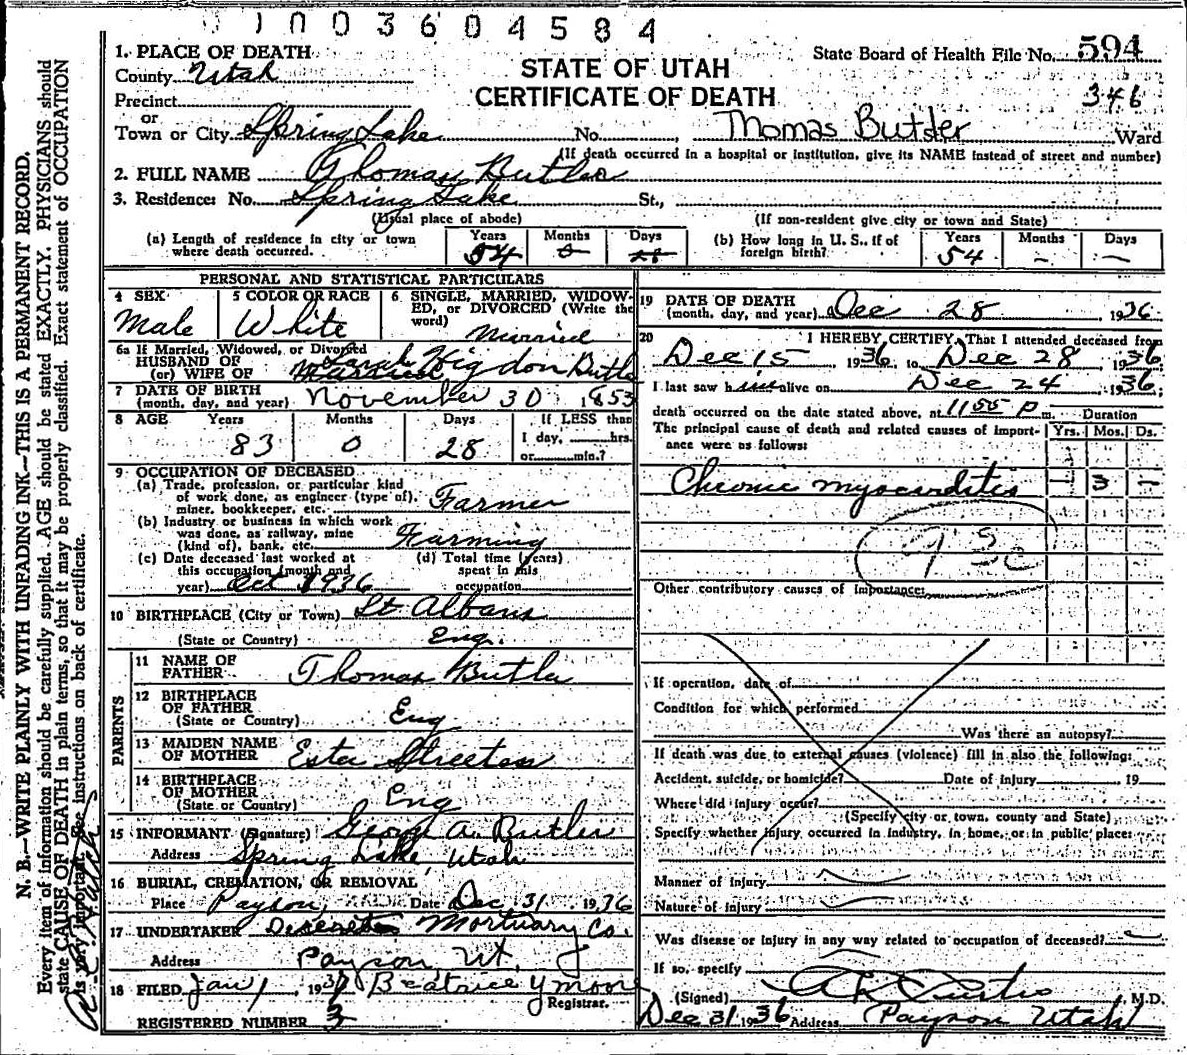 1003604584
1. PLACE OF DEATH
State Board of Health File No. 594
County Utah
STATE OF UTAH
Precinct
CERTIFICATE OF DEATH
346
or
Town or City Spring Lake No. , Thomas Butler Ward
(If death occurred in a hospital or institution, give its NAME instead of street and number)
2. FULL NAME Thomas Butler
3. Residence: No. Spring Lake St.,
(Usual place of abode) (If non-resident give city or town and State)
(a) Length of residence in city or town where death occurred. Years 54 Months 0 Days
(b) How long in U. S., if of foreign birth? Years 54 Months – Days –
PERSONAL AND STATISTICAL PARTICULARS
4 SEX Male
5 COLOR OR RACE White
6 SINGLE, MARRIED, WIDOWED, or DIVORCED (Write the word) Married
6a If Married, Widowed, or Divorced
HUSBAND OF Sarah Higdon Butler
(or) WIFE OF
7 DATE OF BIRTH
(month, day, and year) November 30 1853
8 AGE Years 83 Months 0 Days 28 If LESS than
1 day, hrs.
or min.?
9 OCCUPATION OF DECEASED
(a) Trade, profession, or particular kind
of work done, as engineer (type of),
miner, bookkeeper, etc. Farmer
(b) Industry or business in which work
was done, as railway, mine
(kind of), bank, etc. Farming
(c) Date deceased last worked at
this occupation (month and
year) Oct 1936
(d) Total time (years)
spent in this
occupation
10 BIRTHPLACE (City or Town) St Albans
(State or Country) Eng.
PARENTS
11 NAME OF
FATHER Thomas Butler
12 BIRTHPLACE
OF FATHER
(State or Country) Eng
13 MAIDEN NAME
OF MOTHER Ester Streeten
14 BIRTHPLACE
OF MOTHER
(State or Country) Eng
15 INFORMANT (Signature) George A. Butler
Address Spring Lake, Utah
16 BURIAL, CREMATION, OR REMOVAL
Place Payson, Date Dec 31 1936
17 UNDERTAKER Mortuary Co.
Address Payson Ut.
18 FILED Jan 1, 1937 Beatrice Y Moore
Registrar.
REGISTERED NUMBER 3
19 DATE OF DEATH
(month, day, and year) Dec 28 1936
20 I HEREBY CERTIFY, That I attended deceased from
Dec 15, 1936, to Dec 28, 1936,
I last saw him alive on Dec 24 1936,
death occurred on the date stated above, at 1155 P m. Duration
The principal cause of death and related causes of importance were as follows: Yrs. Mos. Ds.
Chronic myocarditis – 3 –
Other contributory causes of importance:
If operation, date of
Condition for which performed
Was there an autopsy?
If death was due to external causes (violence) fill in also the following:
Accident, suicide, or homicide? Date of injury 19
Where did injury occur?
(Specify city or town, county and State)
Specify whether injury occurred in industry, in home, or in public place:
Manner of injury
Nature of injury
Was disease or injury in any way related to occupation of deceased?
If so, specify
(Signed) Curtis, M.D.
Dec 31 1936 Address Payson Utah
N. B.—WRITE PLAINLY WITH UNFADING INK—THIS IS A PERMANENT RECORD.
Every item of information should be carefully supplied. AGE should be stated EXACTLY. PHYSICIANS should
state CAUSE OF DEATH in plain terms, so that it may be properly classified. Exact statement of OCCUPATION
is very important. See instructions on back of certificate.